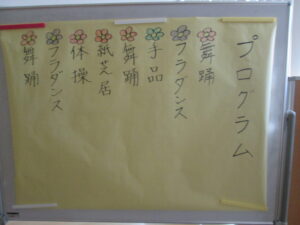 プログラム
舞踊
フラダンス
手品
舞踊
紙芝居
体操
フラダンス
舞踊